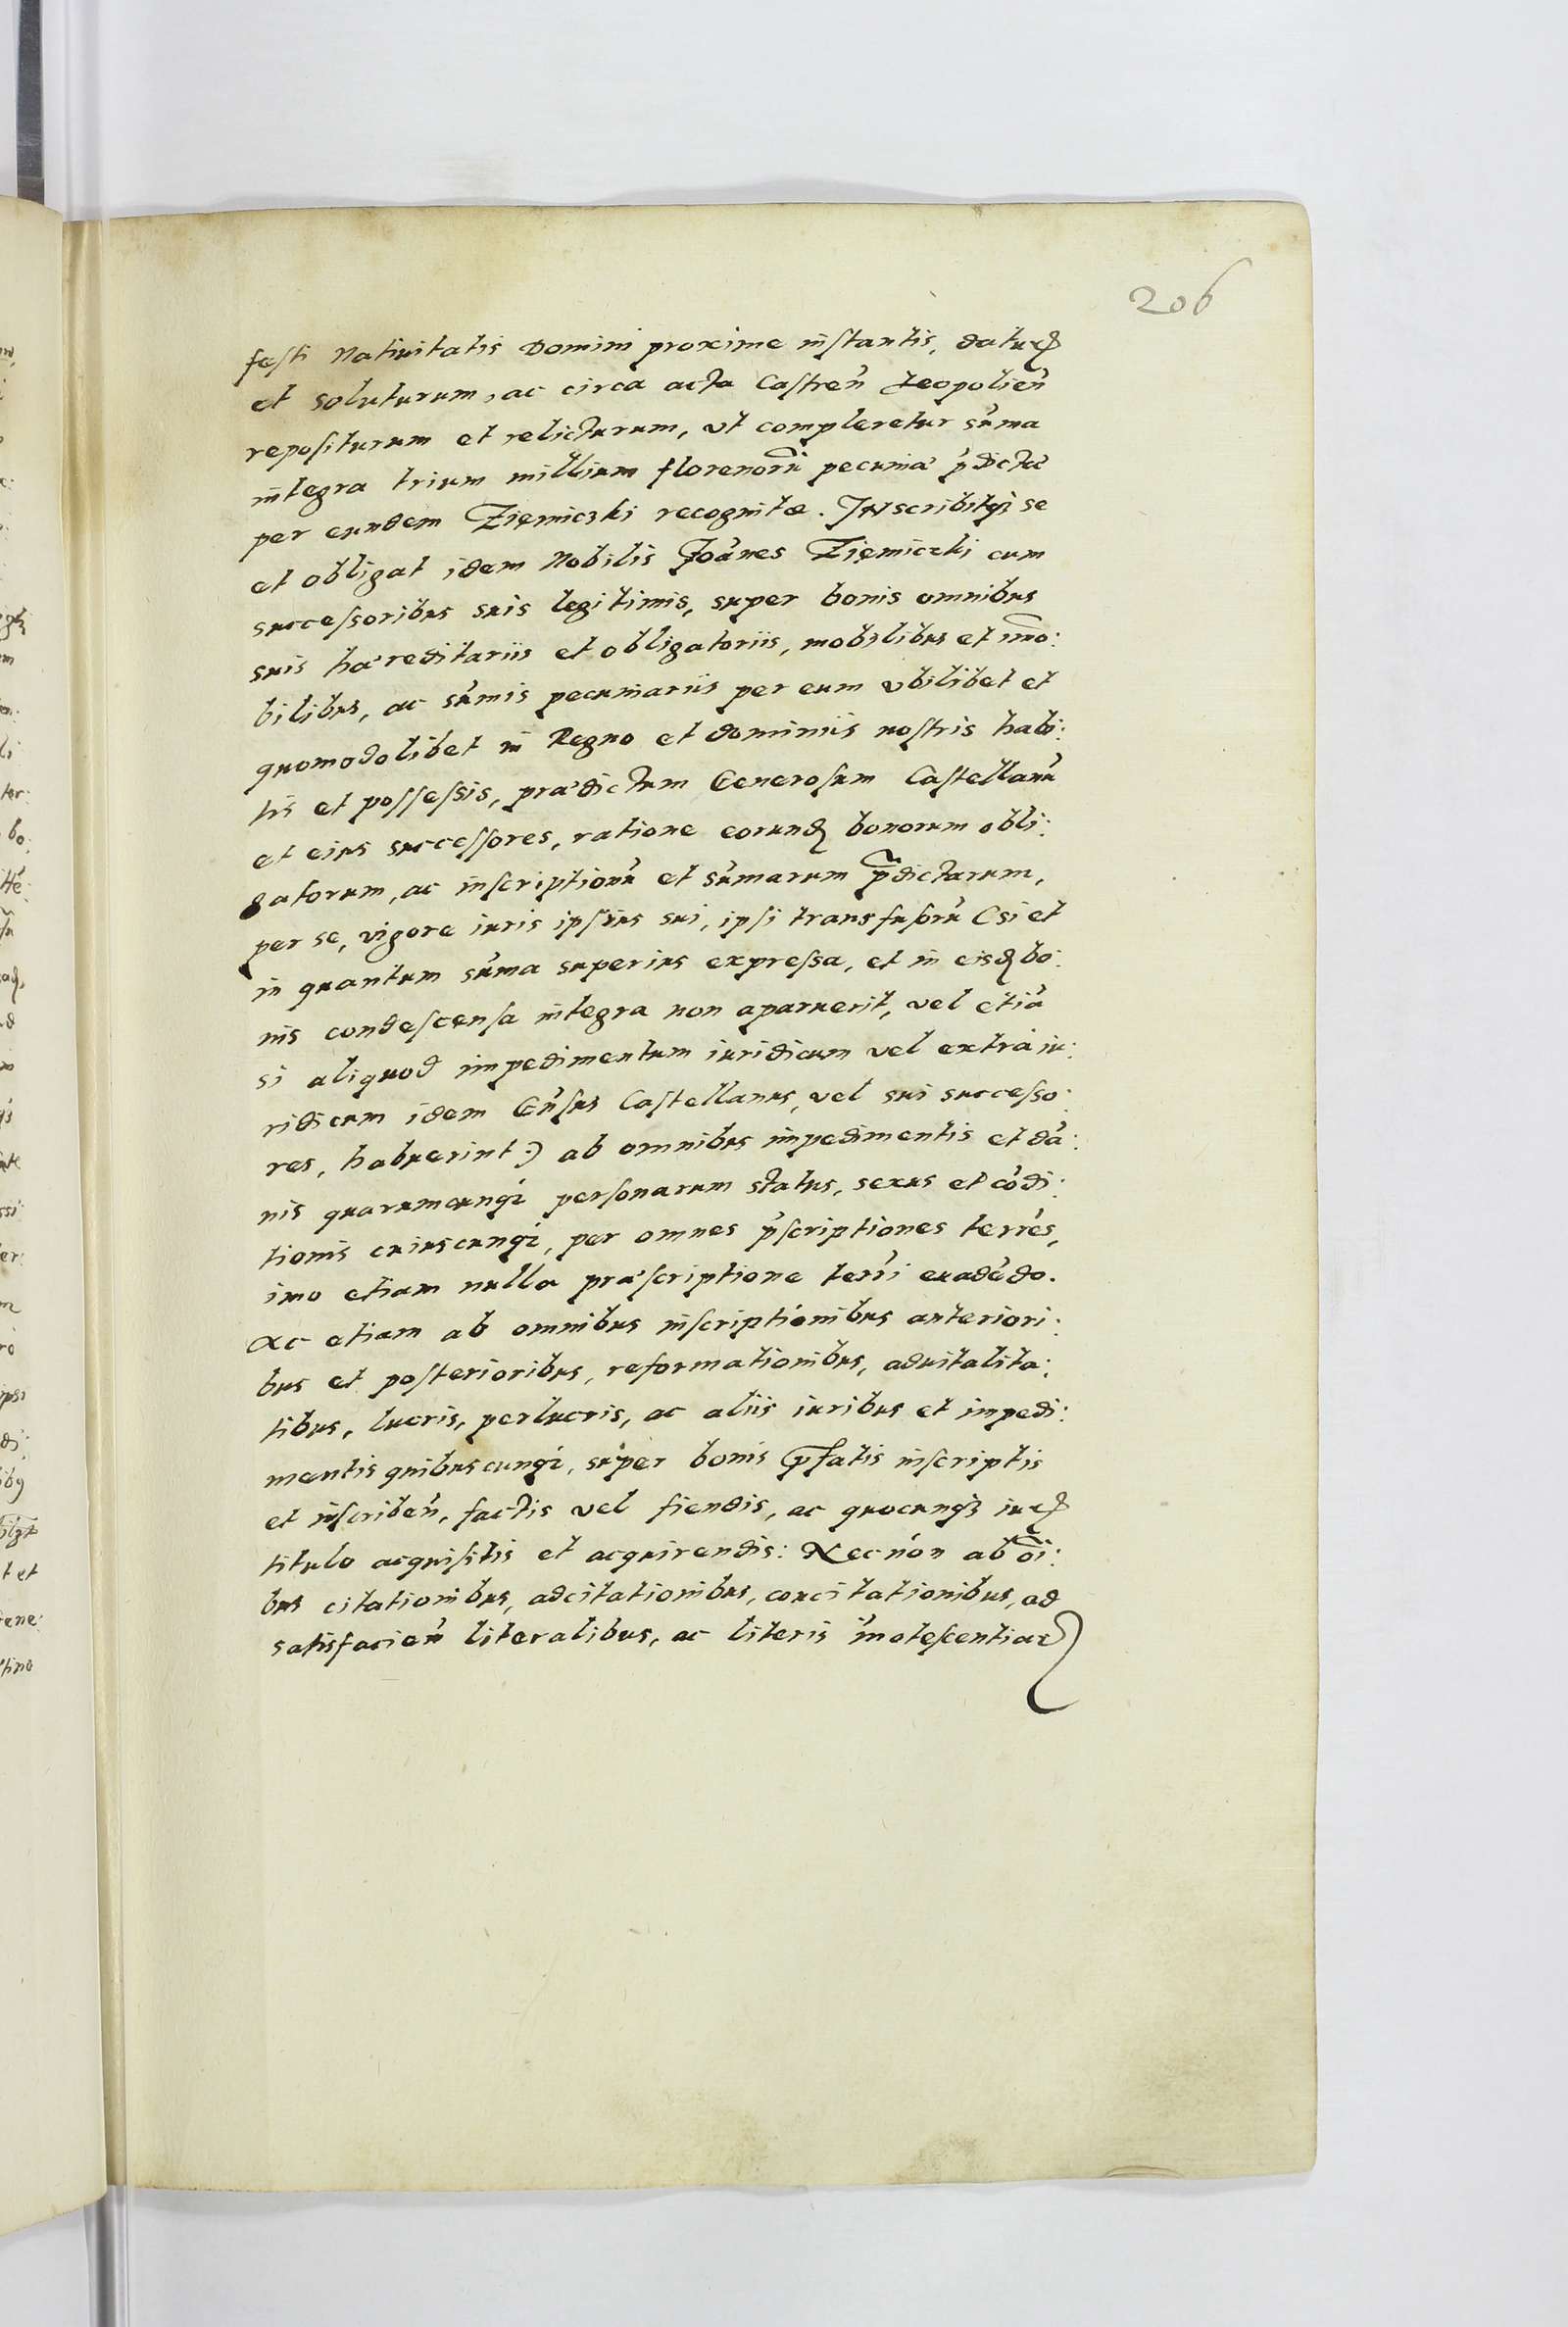 206
festi Natiuitatis Domini proxime instantis, daturū
et soluturum, ac circa acta Castren̄ Leopolien̄
repositurum et relicturum, vt compleretur sum̄a
integra trium millium florenorū pecuniæ p̄dictæ
per eundem Zięmiczki recognitæ. INscribitqꝫ se
et obligat idem Nobilis Joān̄es Zięmiczki cum
successoribus suis legitimis, super bonis omnibus
suis hæreditariis et obligatoriis, mobilibus et im̄o:
bilibus, ac sum̄is pecuniariis per eum vbilibet et
quomodolibet in Regno et dominiis nostris habi:
tis et possessis, prædictum Generosum Castellanū
et eius successores, ratione eorund bonorum obli:
gatorum, ac inscriptionū et sum̄arum p̄dictarum,
per se, vigore iuris ipsius sui, ipsi transfusorū (si et
in quantum sum̄a superius expressa, et in eisd bo:
nis condescensa integra non aparuerit, vel etiā
si aliquod impedimentum iuridicum vel extra iu:
ridicum idem Gn̄sus Castellanus, vel sui successo:
res, habuerint:) ab omnibus impedimentis et dā:
nis quarumcunqꝫ personarum status, sexus et cōdi:
tionis cuiuscunqꝫ, per omnes p̄scriptiones terr̄es,
imo etiam nulla præscriptione terr̄i euadēdo.
Ac etiam ab omnibus inscriptionibus anteriori:
bus et posterioribus, reformationibus, aduitalita:
tibus, lucris, perlucris, ac aliis iuribus et impedi:
mentis quibuscunqꝫ, super bonis p̄fatis inscriptis
et inscriben̄, factis vel fiendis, ac quocunqꝫ iur
titulo acquisitis et acquirendis: Necnon ab oī:
bus citationibus, adcitationibus, concitationibus, ad
satisfacien̄ literalibus, ac literis in̄otescentiar